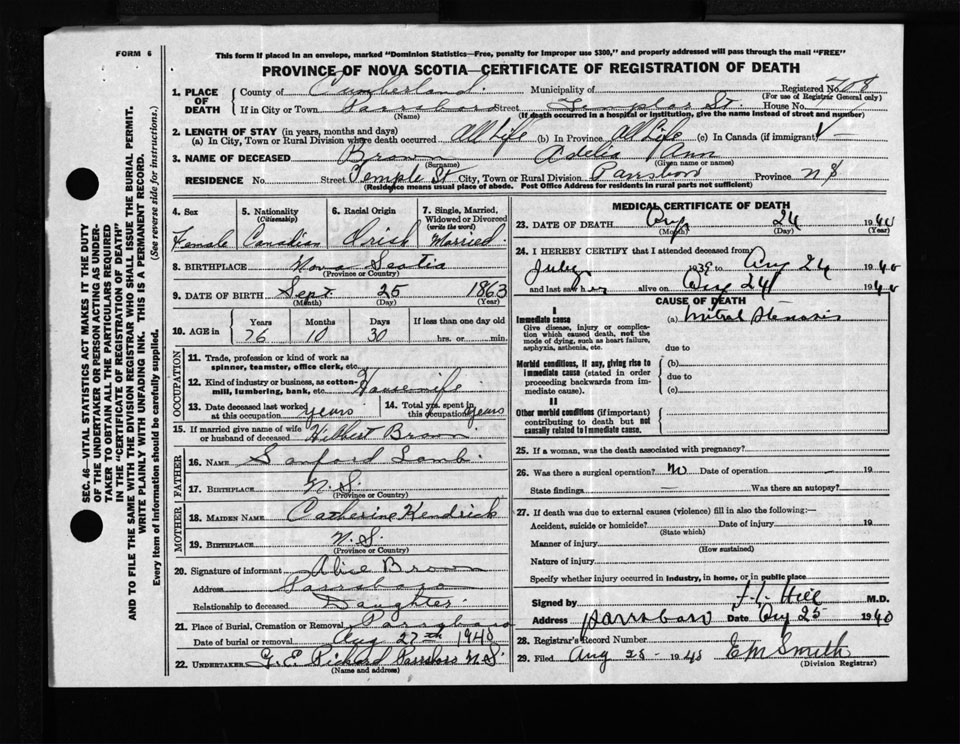 FORM 6
This form if placed in an envelope, marked "Dominion Statistics—Free, penalty for improper use $300," and properly addressed will pass through the mail "FREE"
PROVINCE OF NOVA SCOTIA—CERTIFICATE OF REGISTRATION OF DEATH
1. PLACE OF DEATH County of Cumberland Municipality of Registered No. 708
(For use of Registrar General only)
If in City or Town Parrsboro Street House No.
(Name) (If death occurred in a hospital or institution, give the name instead of street and number)
2. LENGTH OF STAY (in years, months and days)
(a) In City, Town or Rural Division where death occurred All life (b) In Province All Life (c) In Canada (if immigrant)
3. NAME OF DECEASED Brown Adelia Ann
(Surname) (Given name or names)
RESIDENCE No. Street Temple St City, Town or Rural Division Parrsboro Province N S
(Residence means usual place of abode. Post Office Address for residents in rural parts not sufficient)
4. Sex 5. Nationality (Citizenship) 6. Racial Origin 7. Single, Married, Widowed or Divorced (write the word)
Female Canadian Irish Married
8. BIRTHPLACE Nova Scotia
(Province or Country)
9. DATE OF BIRTH Sept. 25 1863
(Month) (Day) (Year)
10. AGE in Years Months Days If less than one day old
76 10 30 hrs. or min.
OCCUPATION
11. Trade, profession or kind of work as spinner, teamster, office clerk, etc.
12. Kind of industry or business, as cotton-mill, lumbering, bank, etc. Housewife
13. Date deceased last worked at this occupation years 14. Total yrs. spent in this occupation years
15. If married give name of wife or husband of deceased Brown
FATHER
16. NAME Sanford Lamb
17. BIRTHPLACE N. S.
(Province or Country)
MOTHER
18. MAIDEN NAME Catherine Kendrick
19. BIRTHPLACE N. S.
(Province or Country)
20. Signature of informant Alice Brown
Address Parrsboro
Relationship to deceased Daughter
21. Place of Burial, Cremation or Removal Parrsboro
Date of burial or removal Aug 27th 1940
22. UNDERTAKER Parrsboro N.S.
(Name and address)
MEDICAL CERTIFICATE OF DEATH
23. DATE OF DEATH Aug 24 1940
(Month) (Day) (Year)
24. I HEREBY CERTIFY that I attended deceased from
July 1939 to Aug 24 1940
and last saw her alive on Aug 24 1940
CAUSE OF DEATH
I
Immediate cause (a) Mitral Stenosis
Give disease, injury or complication which caused death, not the mode of dying, such as heart failure, asphyxia, asthenia, etc.
due to
Morbid conditions, if any, giving rise to immediate cause (stated in order proceeding backwards from immediate cause).
(b)
due to
(c)
II
Other morbid conditions (if important) contributing to death but not causally related to immediate cause.
25. If a woman, was the death associated with pregnancy?
26. Was there a surgical operation? no Date of operation 19
State findings Was there an autopsy?
27. If death was due to external causes (violence) fill in also the following:—
Accident, suicide or homicide? Date of injury 19
(State which)
Manner of injury
(How sustained)
Nature of injury
Specify whether injury occurred in industry, in home, or in public place
Signed by Hill M.D.
Address Parrsboro Date Aug 25 1940
28. Registrar's Record Number
29. Filed Aug 25 1940 E M Smith
(Division Registrar)
SEC. 46—VITAL STATISTICS ACT MAKES IT THE DUTY
OF THE UNDERTAKER OR PERSON ACTING AS UNDER-
TAKER TO OBTAIN ALL THE PARTICULARS REQUIRED
IN THE "CERTIFICATE OF REGISTRATION OF DEATH"
AND TO FILE THE SAME WITH THE DIVISION REGISTRAR WHO SHALL ISSUE THE BURIAL PERMIT.
WRITE PLAINLY WITH UNFADING INK. THIS IS A PERMANENT RECORD.
Every item of information should be carefully supplied. (See reverse side for instructions.)